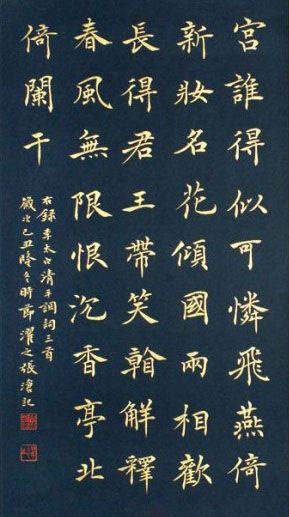 宮誰得似可憐飛燕倚
新妝名花傾國兩相歡
長得君王帶笑翰解釋
春風無限恨沉香亭北
倚闌干
右錄李太白清平調詞三首
歲次己丑隆冬時節濯之張記